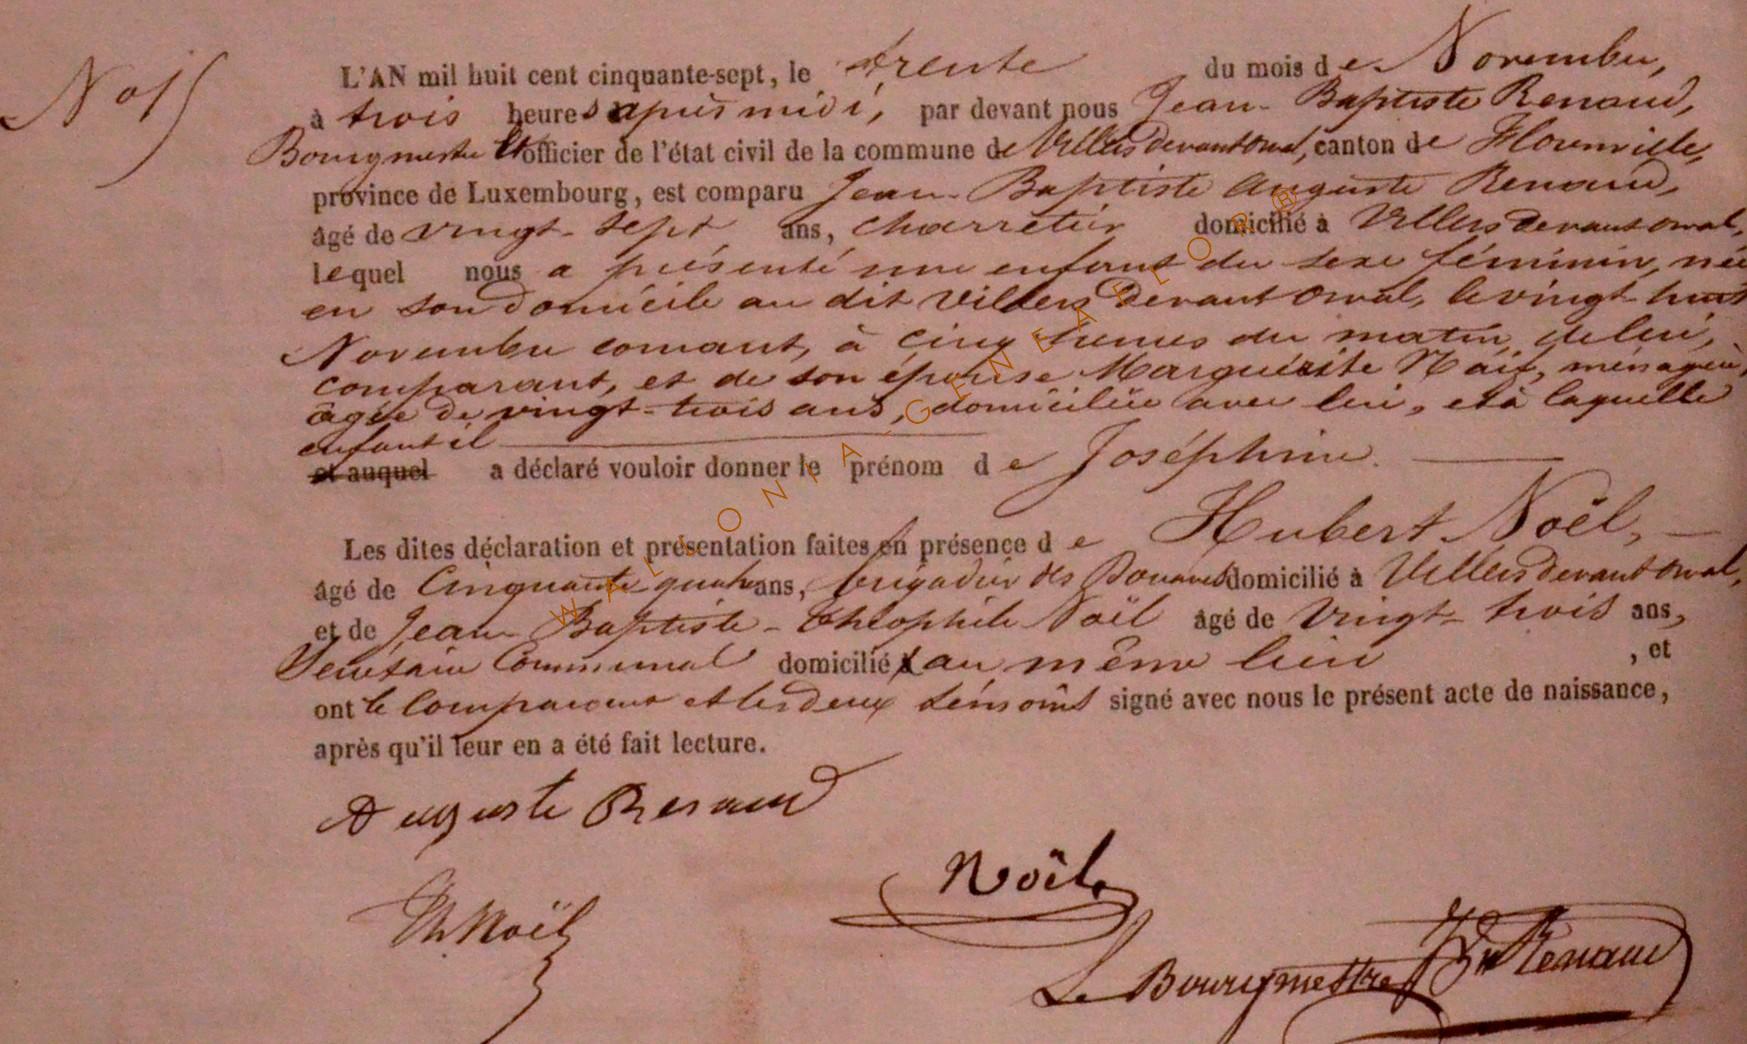 No 15
L'AN mil huit cent cinquante-sept, le trente du mois de Novembre,
à trois heures après midi, par devant nous Jean-Baptiste Renaud,
Bourgmestre Et officier de l'état civil de la commune de Villers devant Orval, canton de Florenville,
province de Luxembourg, est comparu Jean-Baptiste Auguste Renaud,
âgé de vingt-sept ans, charretier domicilié à Villers devant Orval,
lequel nous a présenté une enfant du sexe féminin, née
en son domicile au dit Villers devant Orval, le vingt-huit
Novembre courant, à cinq heures du matin, de lui,
comparant, et de son épouse Marguerite Naif, ménagère,
âgée de vingt-trois ans, domiciliée avec lui, et à laquelle
enfant il
et auquel a déclaré vouloir donner le prénom de Joséphine.
Les dites déclaration et présentation faites en présence de Hubert Noël,
âgé de Cinquante quatre ans, brigadier des Douanes domicilié à Villers devant Orval,
et de Jean-Baptiste-Théophile Noël âgé de vingt-trois ans,
Secrétaire Communal domicilié au même lieu, et
ont le Comparant et les deux témoins signé avec nous le présent acte de naissance,
après qu'il leur en a été fait lecture.
Auguste Renaud
Noël
Th Noël
Le Bourgmestre JBte Renaud
WALLONIA-GENEAFLOR®